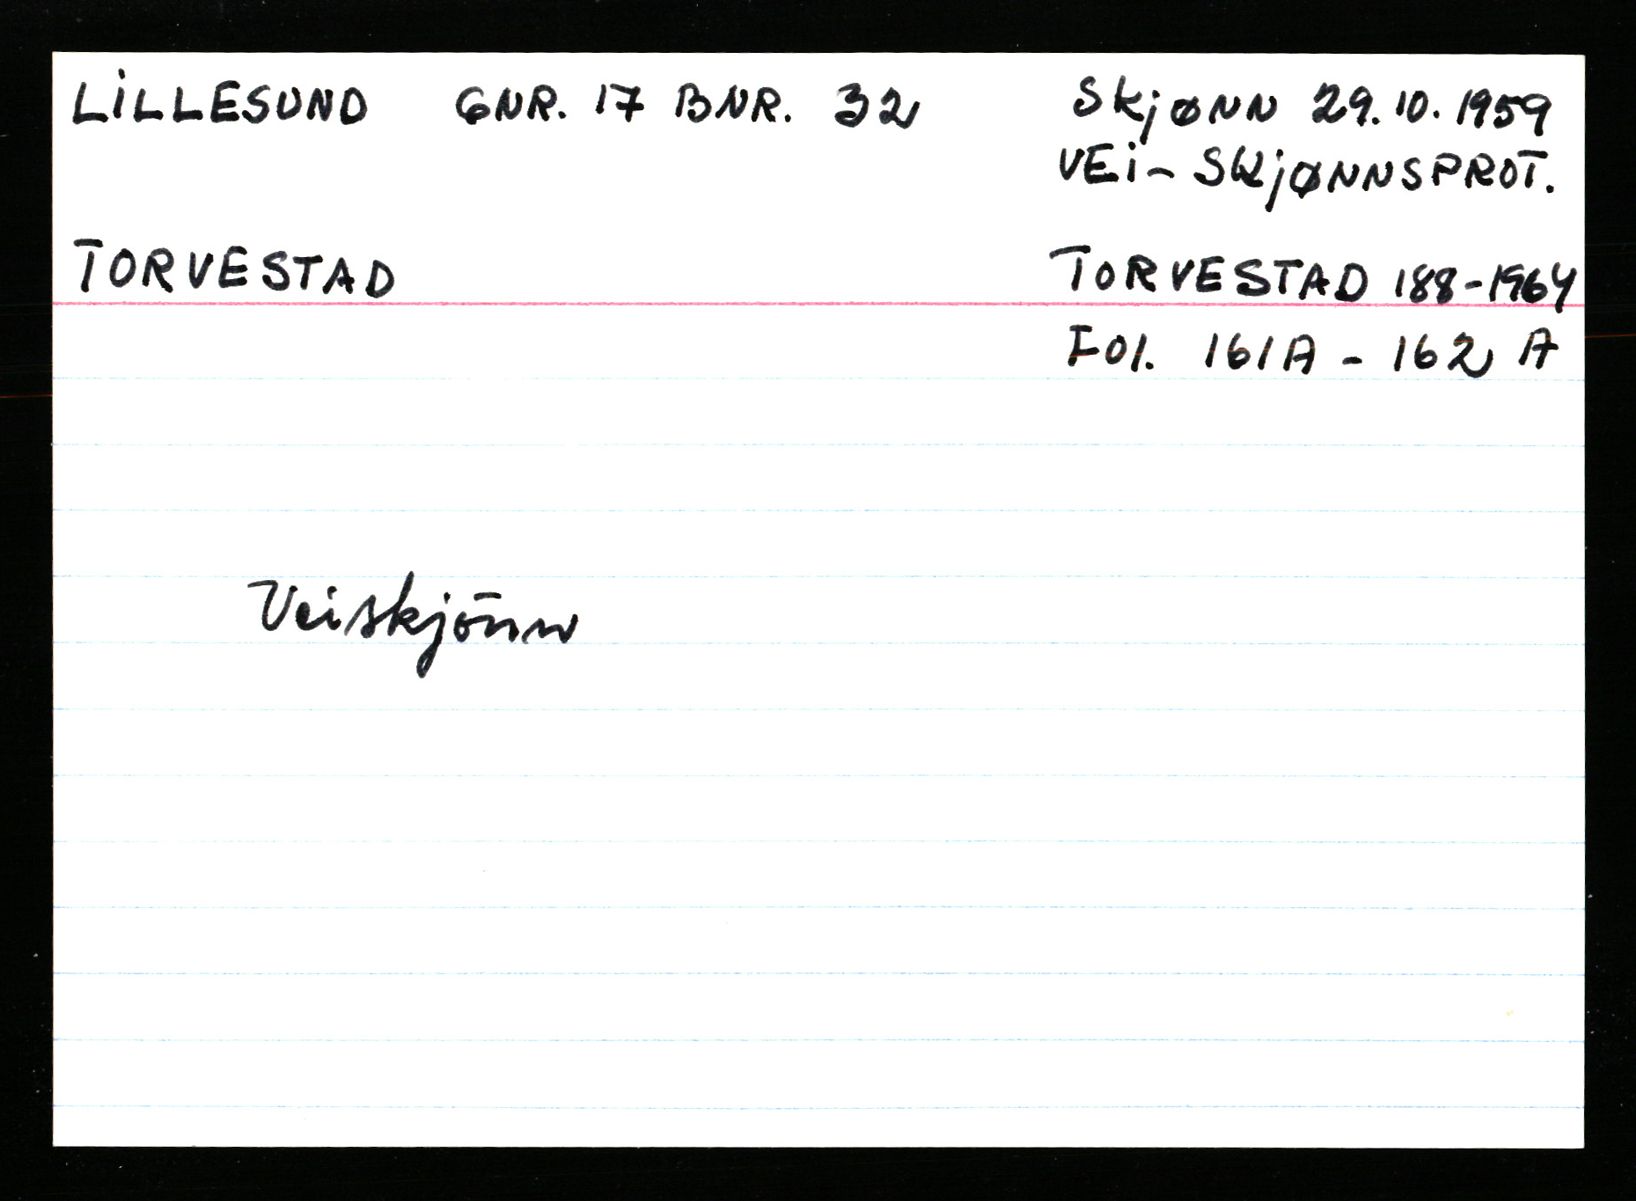 LILLESUND GNR. 17 BNR. 32
Skjønn 29.10.1959
VEI- SKJØNNSPROT.
TORVESTAD
TORVESTAD 188-1964
Fol. 161A - 162A
Veiskjönn